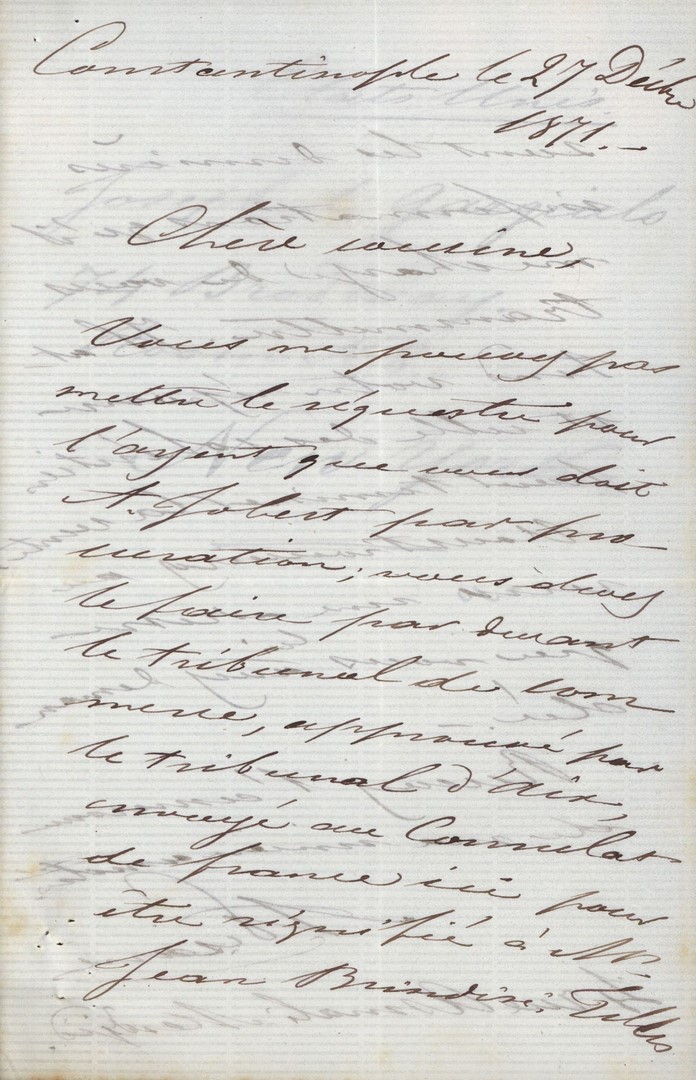 Constantinople le 27 Décbre
1871.–
Chère cousine,
Vous ne pouvez pas
mettre le séquestre pour
l'argent que vous doit
A. Jobert par pro
curation; vous devez
le faire par devant
le tribunal de com
merce, approuvé par
le tribunal d'Aix,
envoyé au Consulat
de france ici pour
être signifié à Mr.
Jean Brindisi. Telles